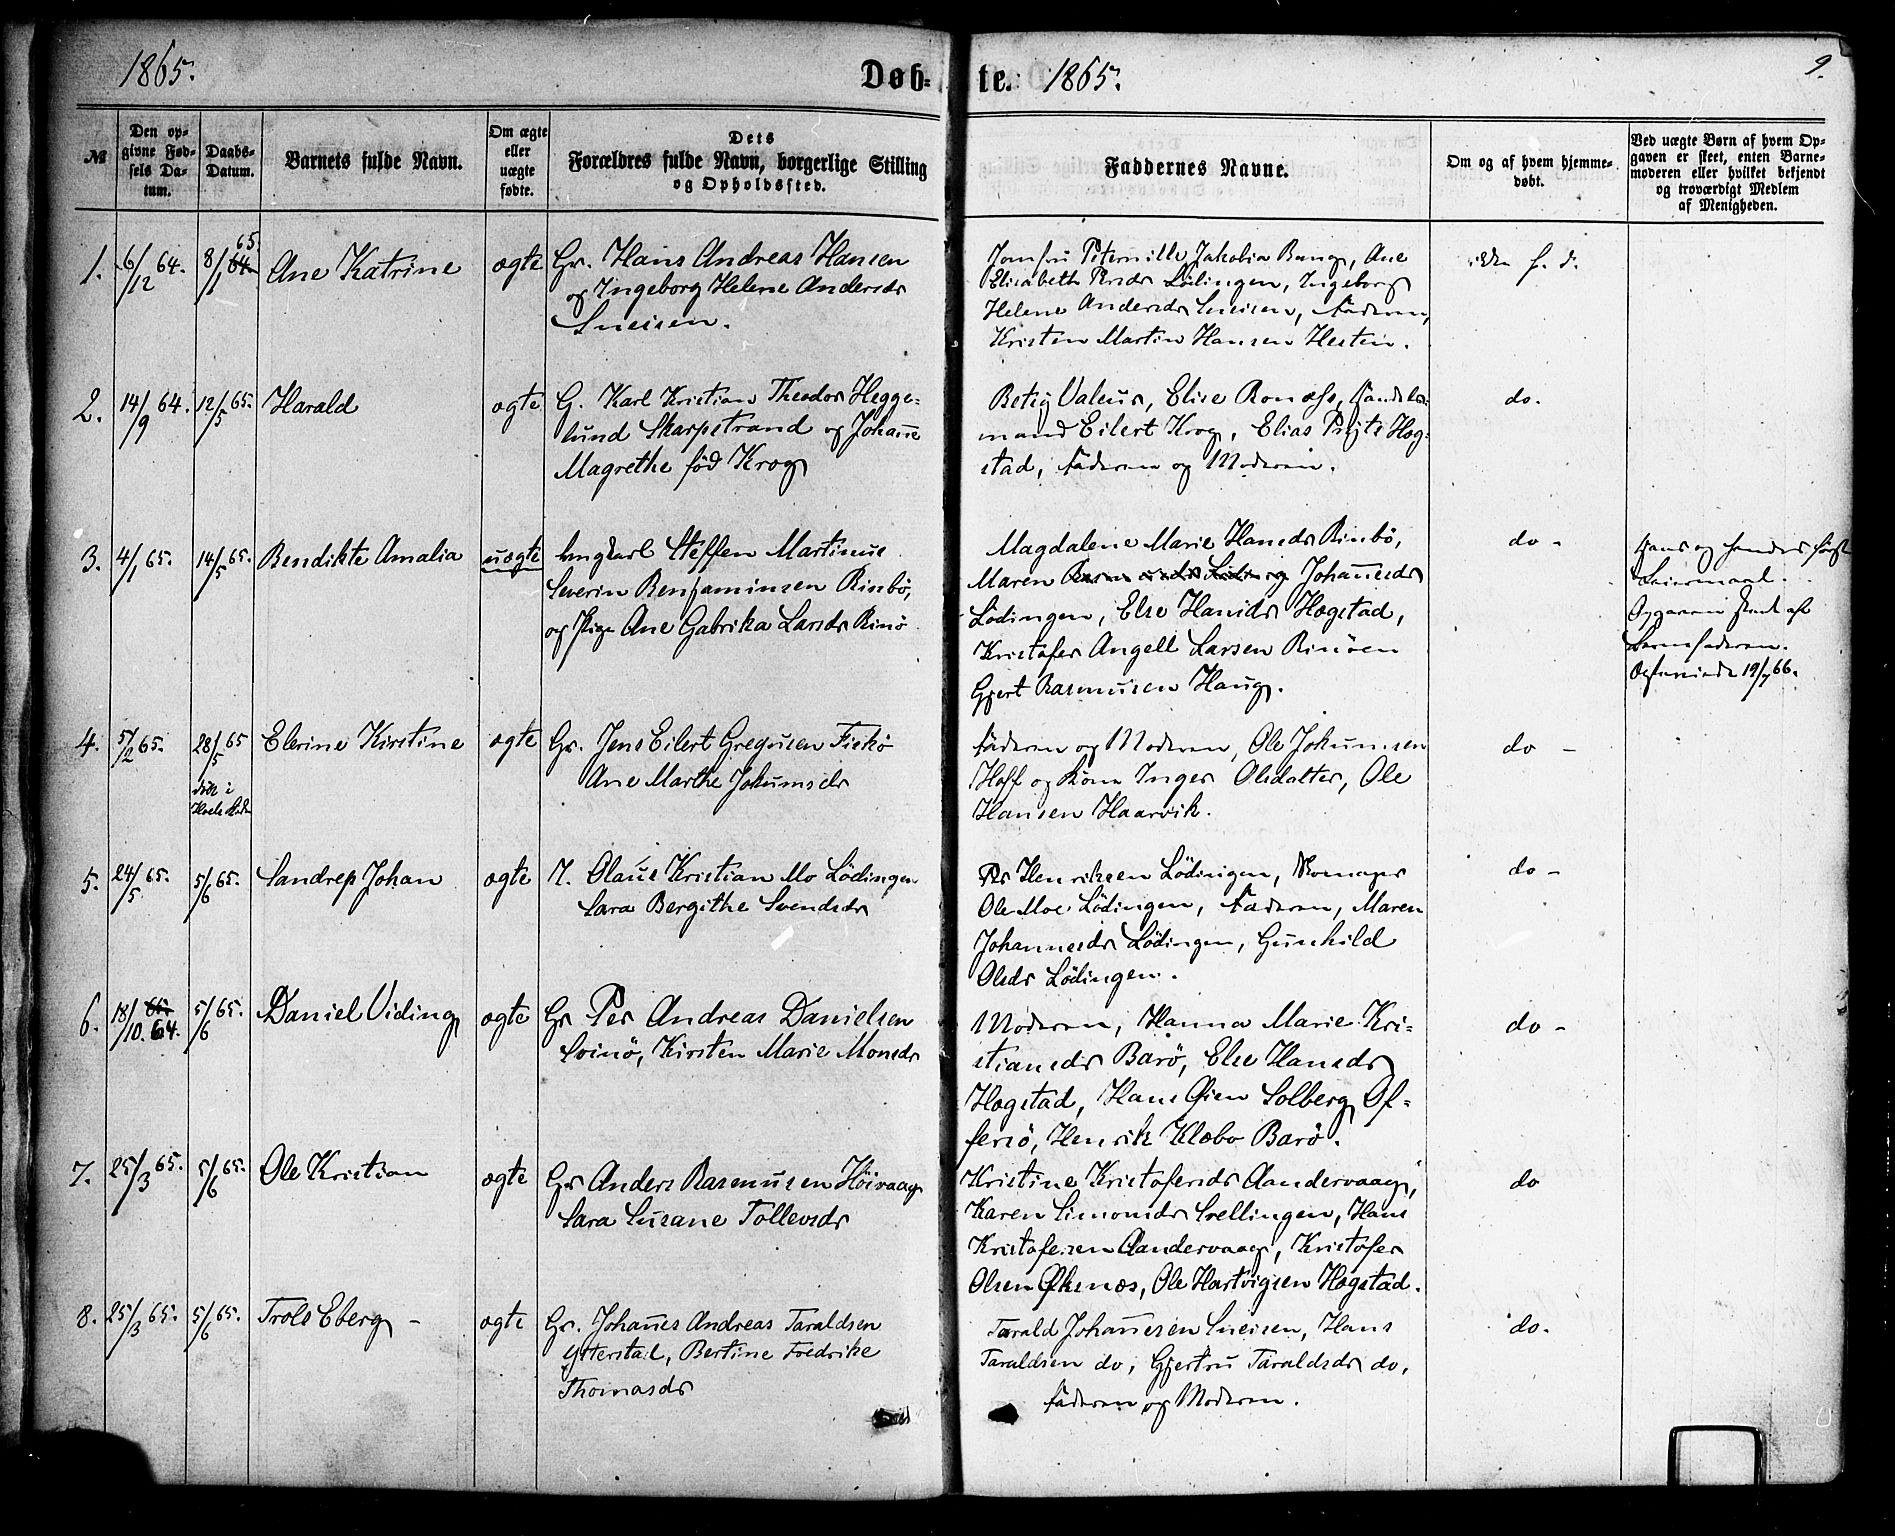 1865. Døb-
te. 1865. 9.
№
Den op-
givne Fød-
sels Da-
tum.
Daabs-
Datum.
Barnets fulde Navn.
Om ægte
eller
uægte
fødte.
Dets
Forældres fulde Navn, borgerlige Stilling
og Opholdssted.
Faddernes Navne.
Om og af hvem hjemme-
døbt.
Ved uægte Børn af hvem Op-
gaven er skeet, enten Barne-
moderen eller hvilket bekjendt
og troværdigt Medlem
af Menigheden.
1. 6/12 64. 8/1 64 65. Ane Katrine ægte
Gr. Hans Andreas Hansen
og Ingeborg Helene Andersdr
Sneisen.
Jomfru Peternille Jakobia Bang, Ane
Elisabeth Persdr Lødingen, Ingeborg
Helene Andersdr Sneisen, Faderen,
Kristen Martin Hansen Hesten.
ikke h. d.
2. 14/9 64. 12/5 65. Harald ægte
G. Karl Kristian Theodor Hegge-
lund Skarpstrand og Johanne
Magrethe fød Krog
Betsy Valeur, Elise Ronæss, Handels-
mand Eilert Krog, Elias Prytz Hog-
stad, Faderen og Moderen.
do.
3. 4/1 65. 14/5 65. Bendikte Amalia uægte
Ungkarl Steffen Martinus
Severin Benjaminsen Rinbø,
og Pige Ane Gabrika Larsdr Rinø
Magdalene Marie Hansdr Rinbø,
Maren Johannesdr
Lødingen, Else Hansdr Hogstad,
Kristofer Angell Larsen Rinøen
Gjert Rasmusen Haug.
do -
Hans og hendes første
Leiermaal.
Opgaven skeet af
Barnefaderen.
19/7 66.
4. 5/2 65. 28/5 65 Elerine Kirstine ægte
døbt i
Gr. Jens Eilert Gregusen Fiskø
Ane Marthe Jokumsdr
Faderen og Moderen, Ole Jokumsen
Hoff og Kone Inger Olsdatter, Ole
Hansen Haarvik.
do -
5. 24/5 65. 5/6 65. Sandrep Johan ægte
I. Olaus Kristian Mo Lødingen
Sara Bergithe Svendsdr
Per Henriksen Lødingen,
Ole Moe Lødingen, Faderen, Maren
Johannesdr Lødingen, Gunhild
Olsdr Lødingen.
do -
6. 18/10. 65 64. 5/6 65. Daniel Viding ægte
Gr Per Andreas Danielsen
Svinø, Kirsten Marie Monsdr
Moderen, Hanna Marie Kri-
stiansdr Barø, Else Hansdr
Hogstad, Hans Øien Solberg Of-
fersø, Henrik Klæbo Barø.
do -
7. 25/3 65. 5/6 65. Ole Kristian ægte
Gr Anders Rasmusen Høivaag
Sara Susane Tollevsdr
Kristine Kristofersdr Aandervaag,
Karen Simonsdr Svellingen, Hans
Kristofersen Aandervaag, Kristofer
Olsen Øksnæs, Ole Hartvigsen Hogstad.
do
8. 25/3 65. 5/6 65. Trols Eberg - ægte
Gr. Johannes Andreas Taraldsen
Ytterstad, Bertine Fredrike
Thomasdr
Tarald Johannesen Sneisen, Hans
Taraldsen do, Gjertru Taraldsdr do,
Faderen og Moderen.
do.